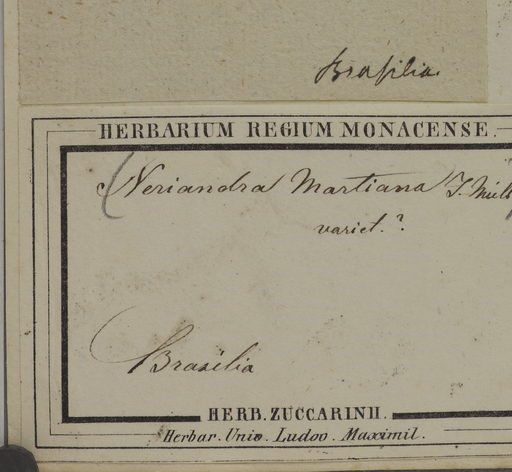 Brasilia
HERBARIUM REGIUM MONACENSE.
(Neriandra Martiana J. Müll
variet.?
Brasilia
HERB. ZUCCARINII.
Herbar. Univ. Ludov. Maximil.